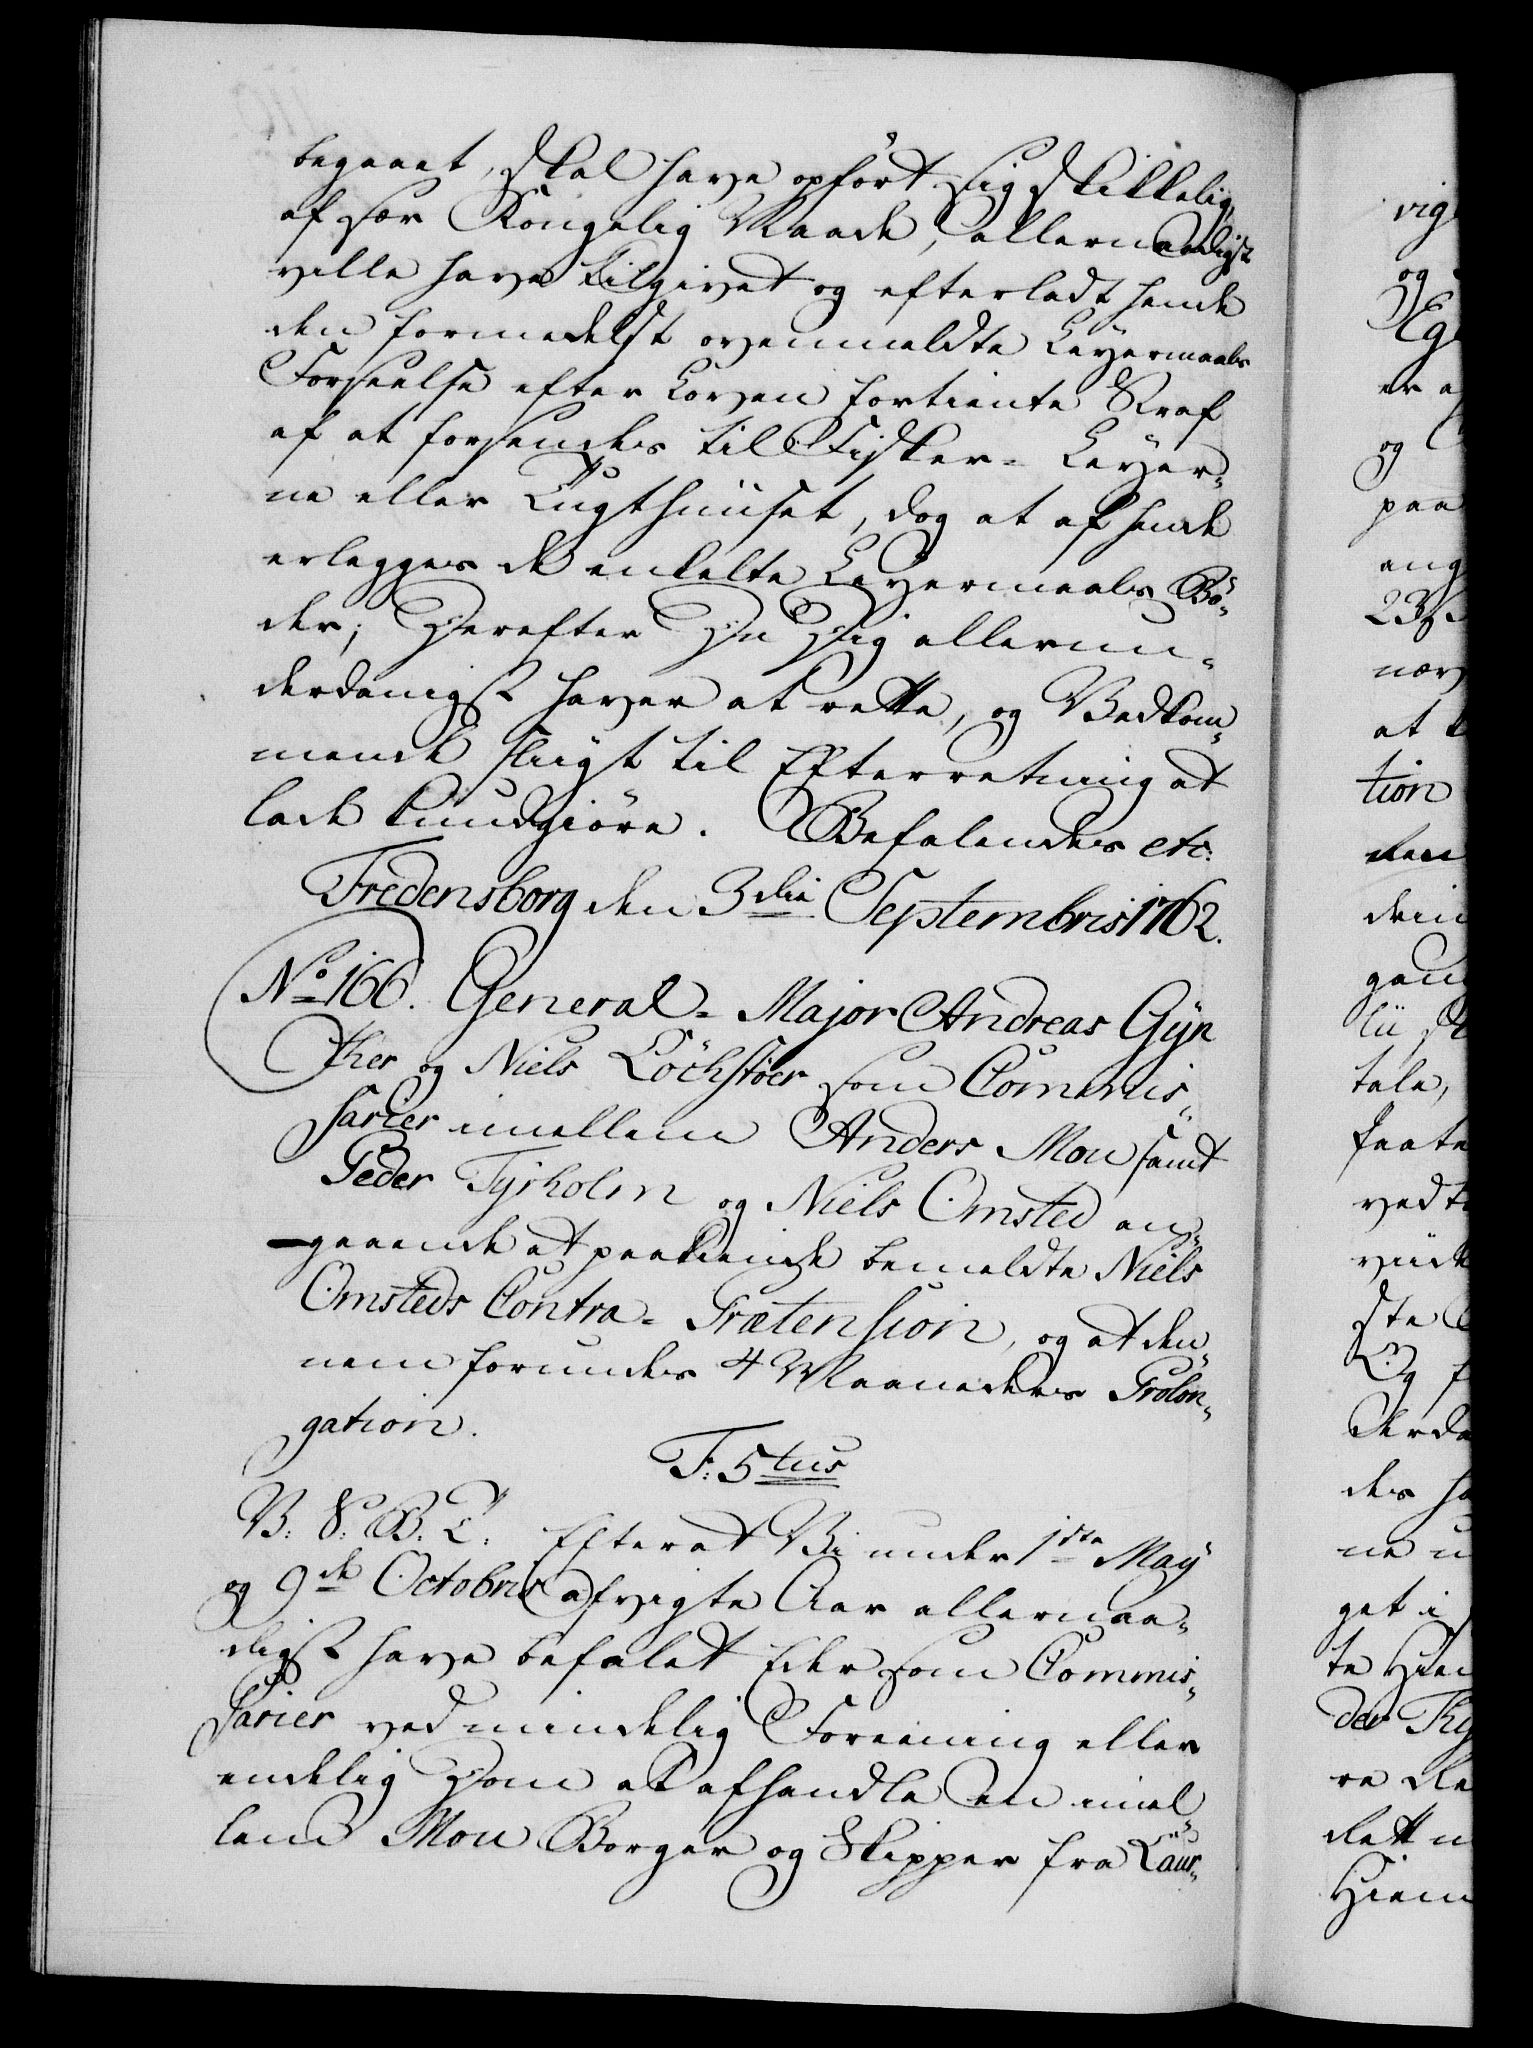 begaaet, skal have opført sig skikkelig,
af sær Kongelig Naade, allernaadigst
ville have tilgivet og efterladt hende
den formedelst ovenmeldte Leyermaals
Forseelse efter Loven fortiente Straf
af at forsendes til Fisker-Leyer-
ne eller Tugthuuset, dog at af hende
erlegges de enkelte Leyermaals Bø-
der; Derefter Du Dig allerun-
derdanigst haver at rette, og Vedkom-
mende sligt til Efterretning at
lade kundgiøre. Befalendes etc:
Fredensborg den 3die Septembris 1762.
No 166. General-Major Andreas Gyn
ther og Niels Lochstöer som Commis-
sarier imellem Anders Mou samt
Peder Tyrholm og Niels Omsted an-
gaaende at paakiende bemeldte Niels
Omsteds Contra-Prætension, og at den-
nem forundes 4 Maaneders Prolon-
gation.
F: 5tus
V: S: B: T: Efterat Vi under 1ste May
og 9de Octobris afvigte Aar allernaa-
digst have befalet Eder som Commis-
sarier ved mindelig Foreening eller
endelig Dom at afhandle en imel-
lem Mou Borger og Skipper fra Laur-
vig
og
er
og
paa
at
tion
tale,
ved
ste
Og
des
ne
get i
te
der
re